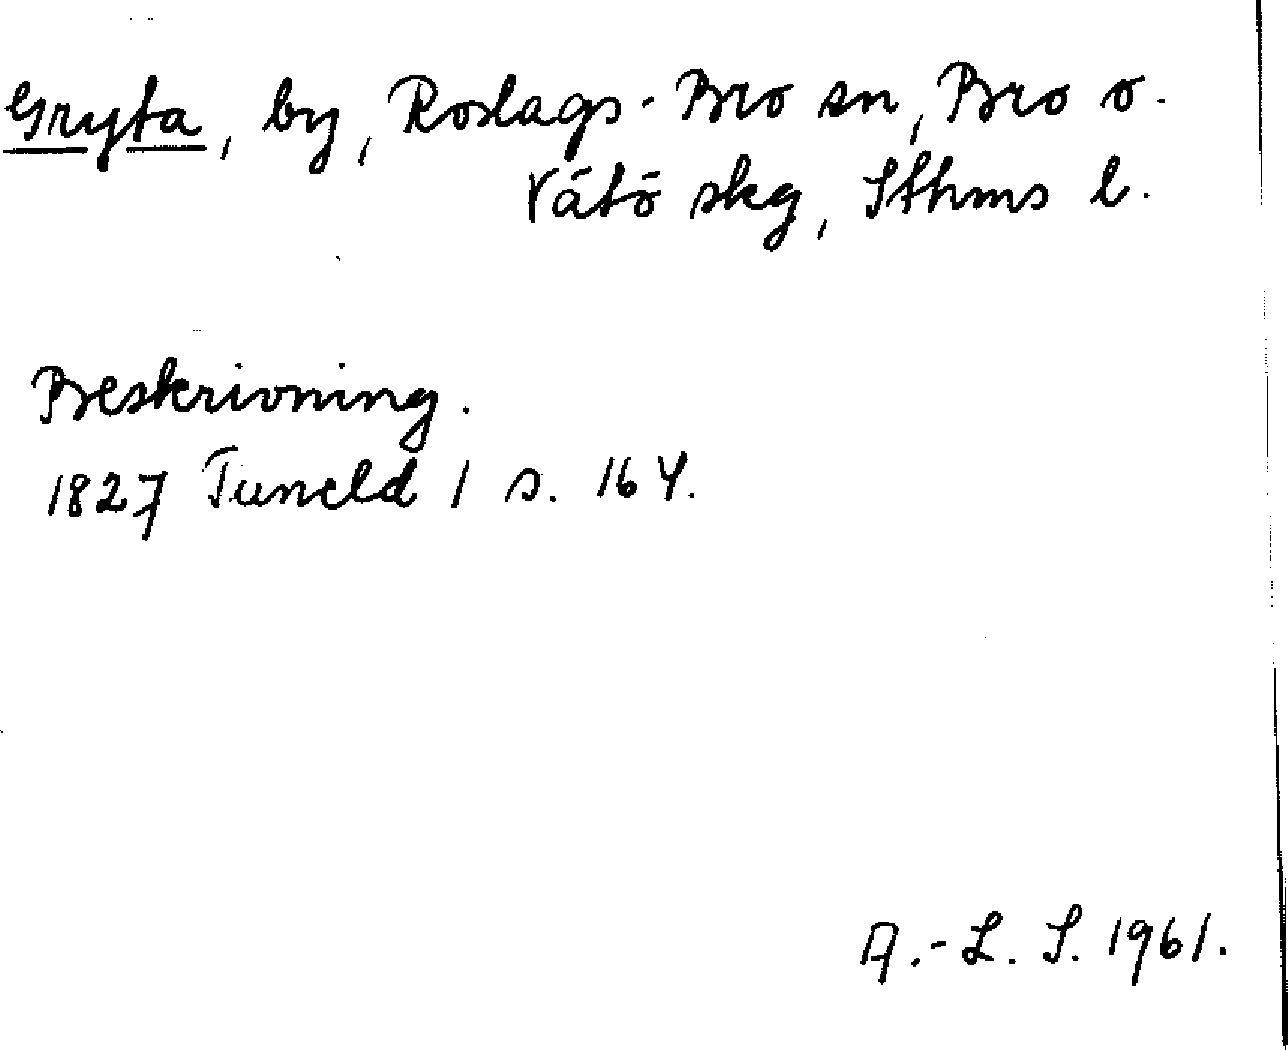 Gryta, by, Roslags-Bro sn, Bro o.
Vätö skg, Sthms l.
Beskrivning.
1827 Tuneld 1 s. 164.
A.-L. S. 1961.